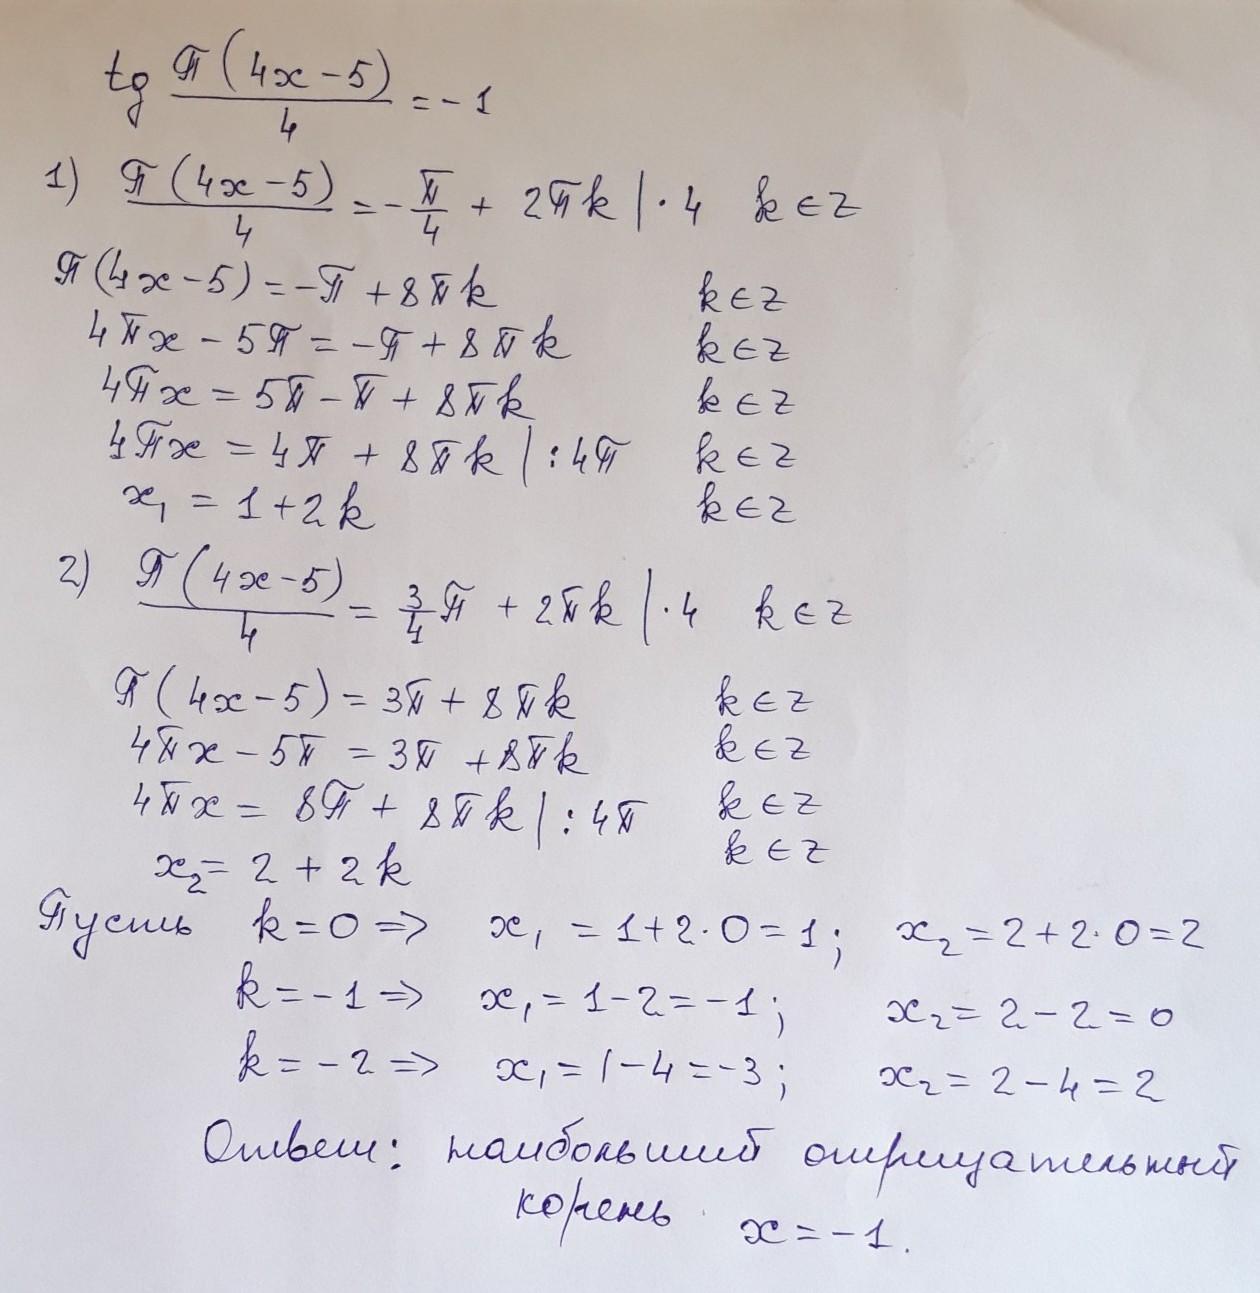 tg π(4x-5)/4 = -1
1) π(4x-5)/4 = -π/4 + 2πk | · 4 k ∈ z
π(4x-5) = -π + 8πk k ∈ z
4πx - 5π = -π + 8πk k ∈ z
4πx = 5π - π + 8πk k ∈ z
4πx = 4π + 8πk | : 4π k ∈ z
x₁ = 1 + 2k k ∈ z
2) π(4x-5)/4 = 3/4 π + 2πk | · 4 k ∈ z
π(4x-5) = 3π + 8πk k ∈ z
4πx - 5π = 3π + 8πk k ∈ z
4πx = 8π + 8πk | : 4π k ∈ z
x₂ = 2 + 2k k ∈ z
Пусть k = 0 => x₁ = 1 + 2·0 = 1; x₂ = 2 + 2·0 = 2
k = -1 => x₁ = 1 - 2 = -1; x₂ = 2 - 2 = 0
k = -2 => x₁ = 1 - 4 = -3; x₂ = 2 - 4 = 2
Ответ: наибольший отрицательный
корень x = -1.